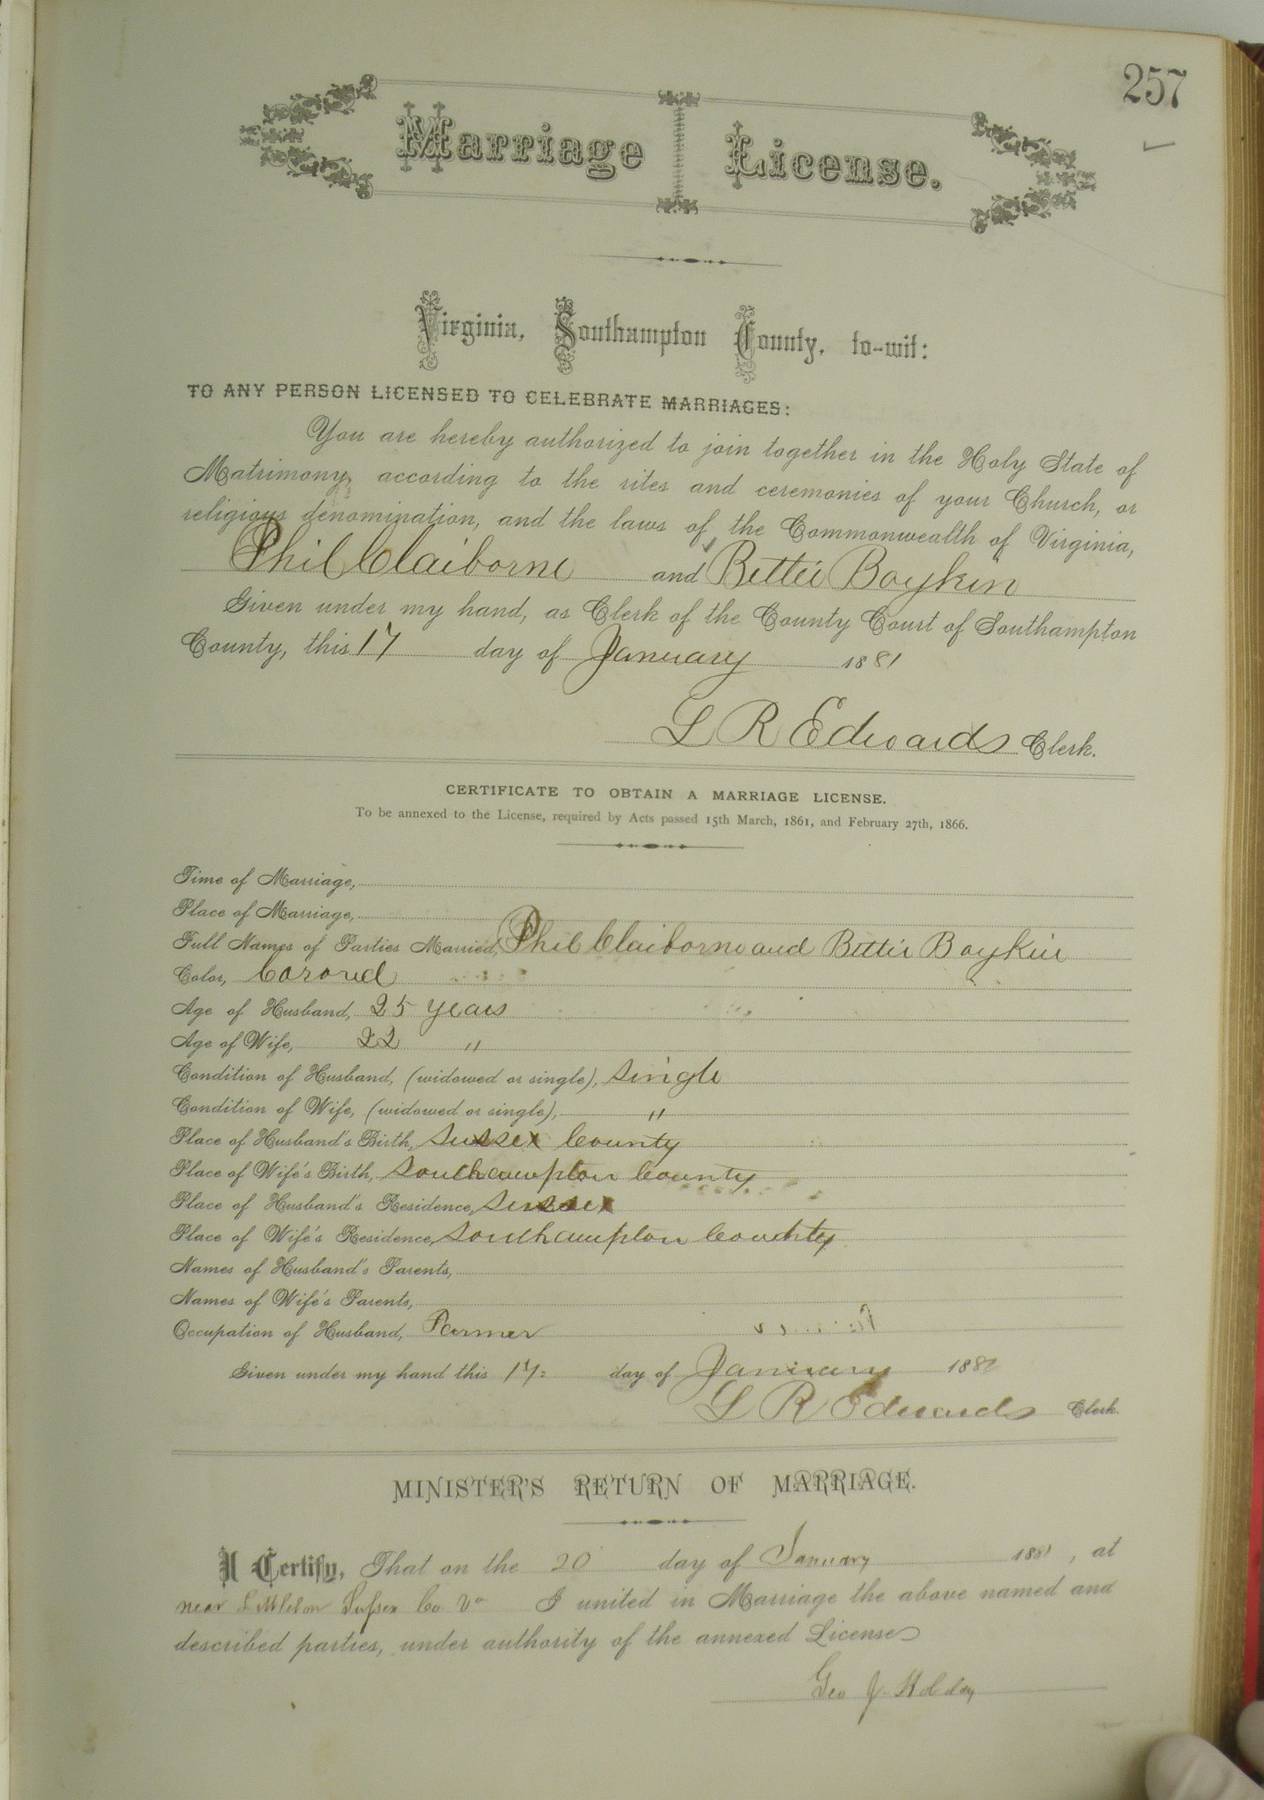 257
Marriage License.
Virginia, Southampton County, to-wit:
TO ANY PERSON LICENSED TO CELEBRATE MARRIAGES:
You are hereby authorized to join together in the Holy State of
Matrimony, according to the rites and ceremonies of your Church, or
religious denomination, and the laws of the Commonwealth of Virginia,
Phil Claiborne and Bettie Boykin
Given under my hand, as Clerk of the County Court of Southampton
County, this 17 day of January 1881
L R Edwards Clerk.
CERTIFICATE TO OBTAIN A MARRIAGE LICENSE.
To be annexed to the License, required by Acts passed 15th March, 1861, and February 27th, 1866.
Time of Marriage,
Place of Marriage,
Full Names of Parties Married, Phil Claiborne and Bettie Boykin
Color, Corored
Age of Husband, 25 years
Age of Wife, 22 "
Condition of Husband, (widowed or single), single
Condition of Wife, (widowed or single), "
Place of Husband's Birth, Sussex County
Place of Wife's Birth, Southampton County
Place of Husband's Residence, Sussex
Place of Wife's Residence, Southampton County
Names of Husband's Parents,
Names of Wife's Parents,
Occupation of Husband, Farmer
Given under my hand this 17 day of January 188
L R Edwards Clerk.
MINISTER'S RETURN OF MARRIAGE.
I Certify, That on the 20 day of January 1881, at
near Littleton Sussex Co Va I united in Marriage the above named and
described parties, under authority of the annexed License
Geo J. Holiday